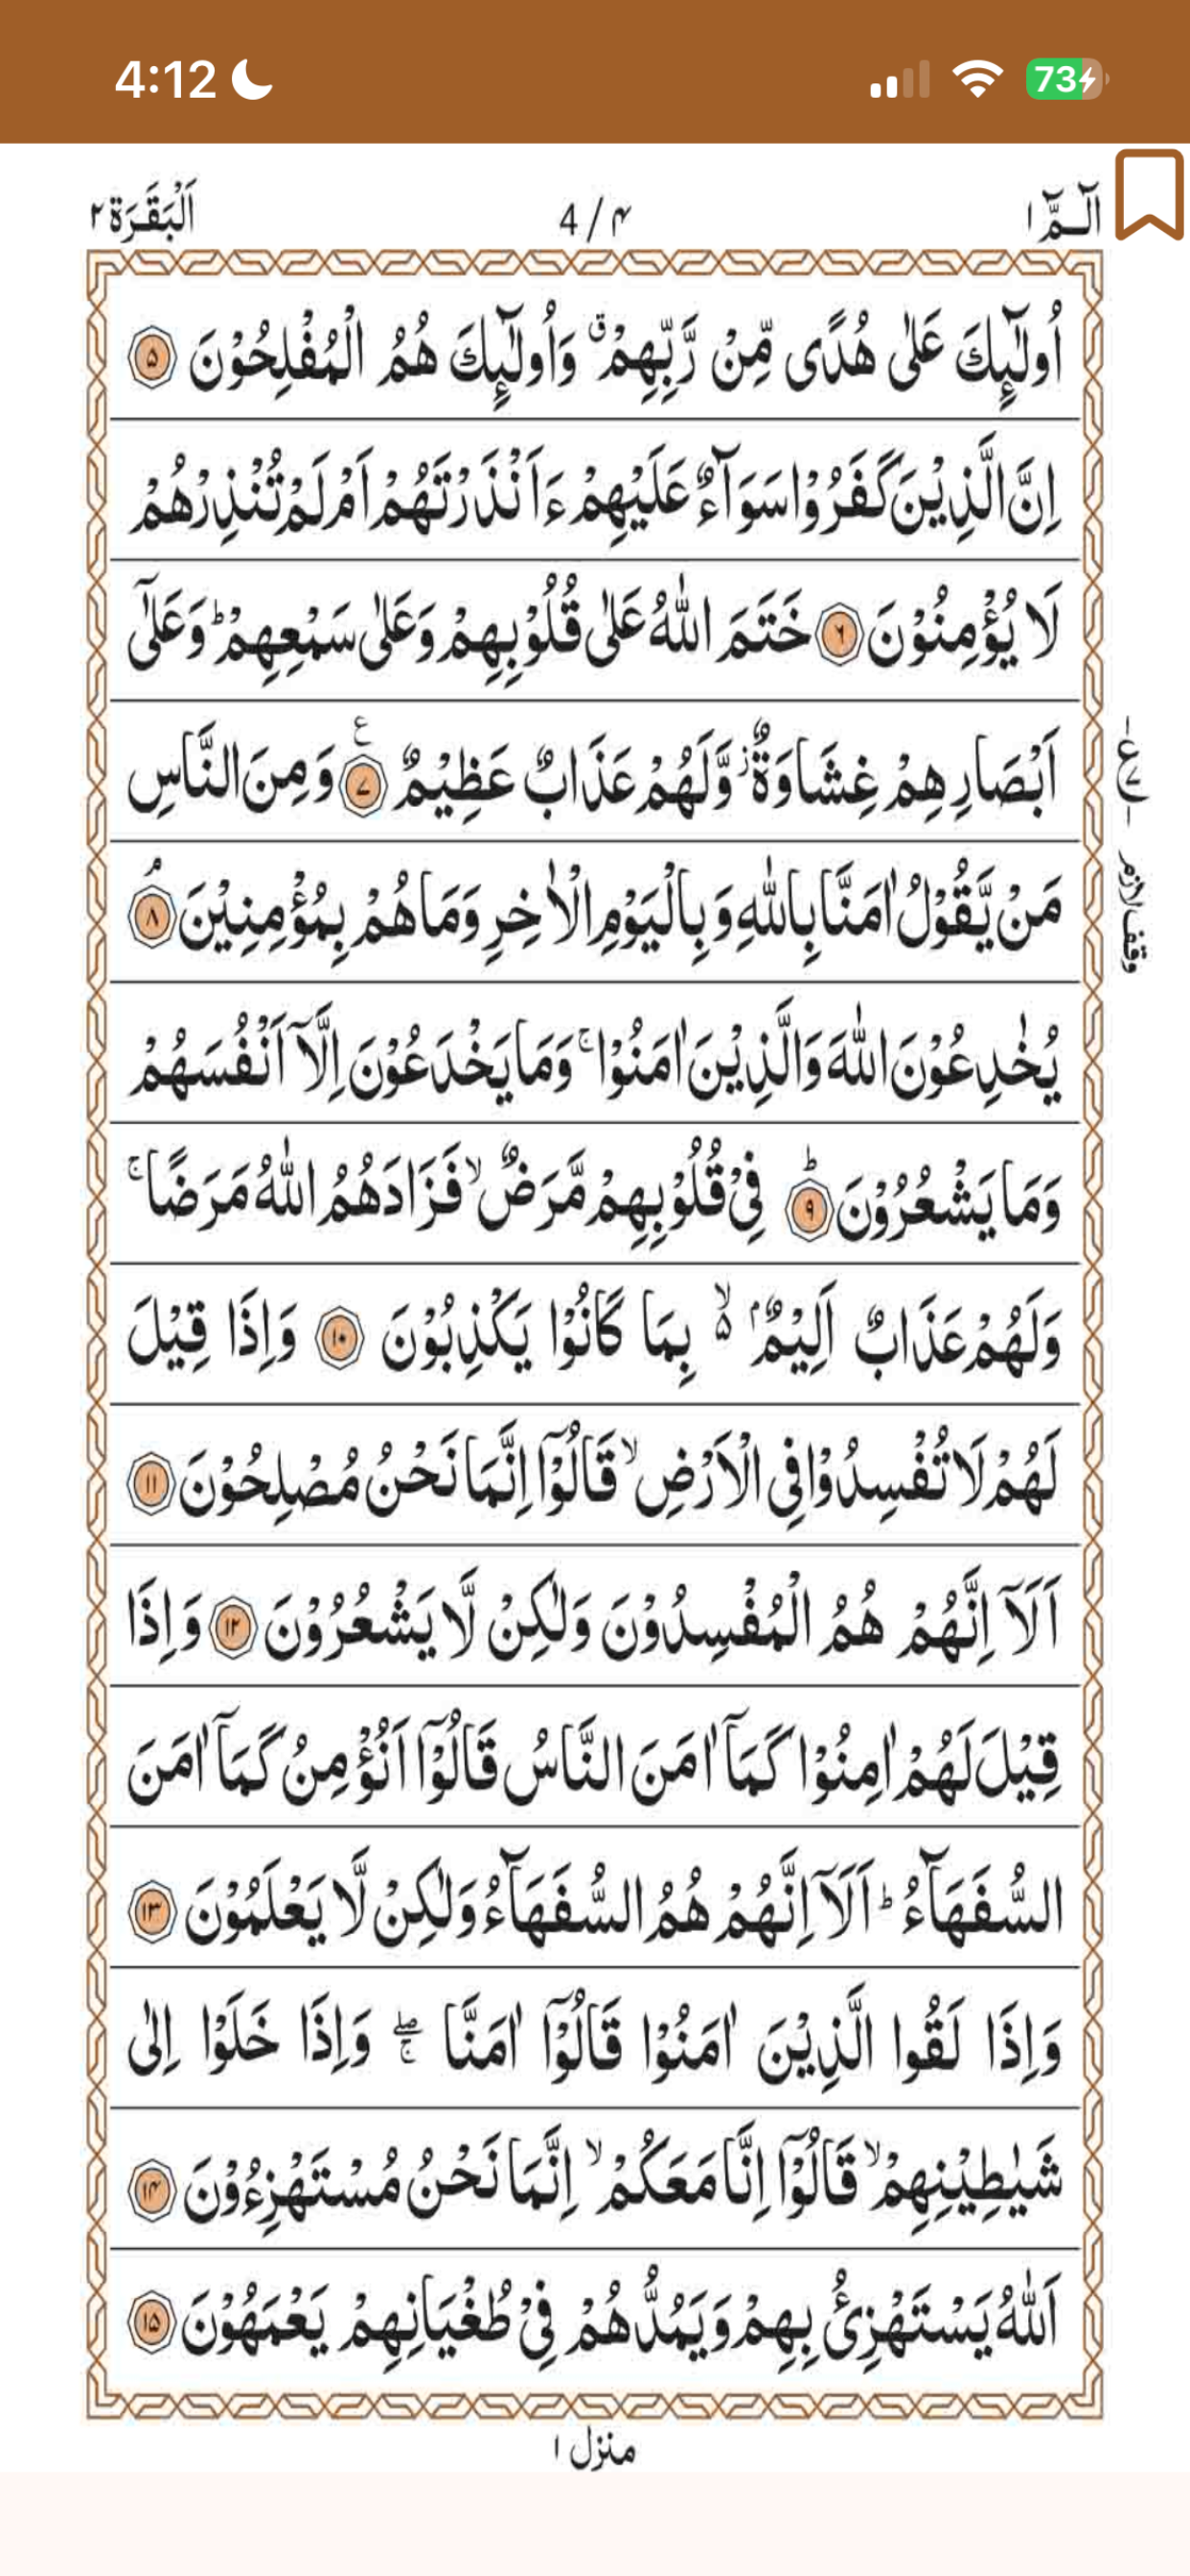 4:12
73
اَلْبَقَرَة ٢
4/۴
الٓـمّٓ ١
اُولٰٓئِكَ عَلٰى هُدًى مِّنْ رَّبِّهِمْ ۗ وَاُولٰٓئِكَ هُمُ الْمُفْلِحُوْنَ ۵
اِنَّ الَّذِيْنَ كَفَرُوْا سَوَآءٌ عَلَيْهِمْ ءَاَنْذَرْتَهُمْ اَمْ لَمْ تُنْذِرْهُمْ
لَا يُؤْمِنُوْنَ ۶ خَتَمَ اللّٰهُ عَلٰى قُلُوْبِهِمْ وَعَلٰى سَمْعِهِمْ ؕ وَعَلٰٓى
اَبْصَارِهِمْ غِشَاوَةٌ ؗ وَّلَهُمْ عَذَابٌ عَظِيْمٌ ۷ ع وَمِنَ النَّاسِ
مَنْ يَّقُوْلُ اٰمَنَّا بِاللّٰهِ وَبِالْيَوْمِ الْاٰخِرِ وَمَا هُمْ بِمُؤْمِنِيْنَ ۘ ۸
وقف لازم
يُخٰدِعُوْنَ اللّٰهَ وَالَّذِيْنَ اٰمَنُوْا ۚ وَمَا يَخْدَعُوْنَ اِلَّآ اَنْفُسَهُمْ
وَمَا يَشْعُرُوْنَ ؕ ۹ فِيْ قُلُوْبِهِمْ مَّرَضٌ ۙ فَزَادَهُمُ اللّٰهُ مَرَضًا ۚ
وَلَهُمْ عَذَابٌ اَلِيْمٌۢ ۙ۬ بِمَا كَانُوْا يَكْذِبُوْنَ ۱۰ وَاِذَا قِيْلَ
لَهُمْ لَا تُفْسِدُوْا فِي الْاَرْضِ ۙ قَالُوْٓا اِنَّمَا نَحْنُ مُصْلِحُوْنَ ۱۱
اَلَآ اِنَّهُمْ هُمُ الْمُفْسِدُوْنَ وَلٰكِنْ لَّا يَشْعُرُوْنَ ۱۲ وَاِذَا
قِيْلَ لَهُمْ اٰمِنُوْا كَمَآ اٰمَنَ النَّاسُ قَالُوْٓا اَنُؤْمِنُ كَمَآ اٰمَنَ
السُّفَهَآءُ ؕ اَلَآ اِنَّهُمْ هُمُ السُّفَهَآءُ وَلٰكِنْ لَّا يَعْلَمُوْنَ ۱۳
وَاِذَا لَقُوا الَّذِيْنَ اٰمَنُوْا قَالُوْٓا اٰمَنَّا ۖۚ وَاِذَا خَلَوْا اِلٰى
شَيٰطِيْنِهِمْ ۙ قَالُوْٓا اِنَّا مَعَكُمْ ۙ اِنَّمَا نَحْنُ مُسْتَهْزِءُوْنَ ۱۴
اَللّٰهُ يَسْتَهْزِئُ بِهِمْ وَيَمُدُّهُمْ فِيْ طُغْيَانِهِمْ يَعْمَهُوْنَ ۱۵
منزل ١